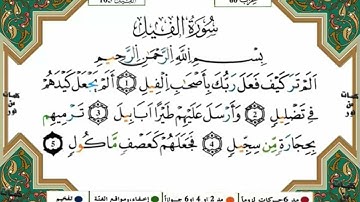 سُورَةُ الفِيلِ
بِسْمِ اللَّهِ الرَّحْمَٰنِ الرَّحِيمِ
أَلَمْ تَرَ كَيْفَ فَعَلَ رَبُّكَ بِأَصْحَابِ الْفِيلِ ١ أَلَمْ يَجْعَلْ كَيْدَهُمْ
فِي تَضْلِيلٍ ٢ وَأَرْسَلَ عَلَيْهِمْ طَيْرًا أَبَابِيلَ ٣ تَرْمِيهِم
بِحِجَارَةٍ مِّن سِجِّيلٍ ٤ فَجَعَلَهُمْ كَعَصْفٍ مَّأْكُولٍ ٥
مد ٦ حركات لزوما مد ٢ أو ٤ أو ٦ جوازا إخفاء، ومواقع الغنة تفخيم